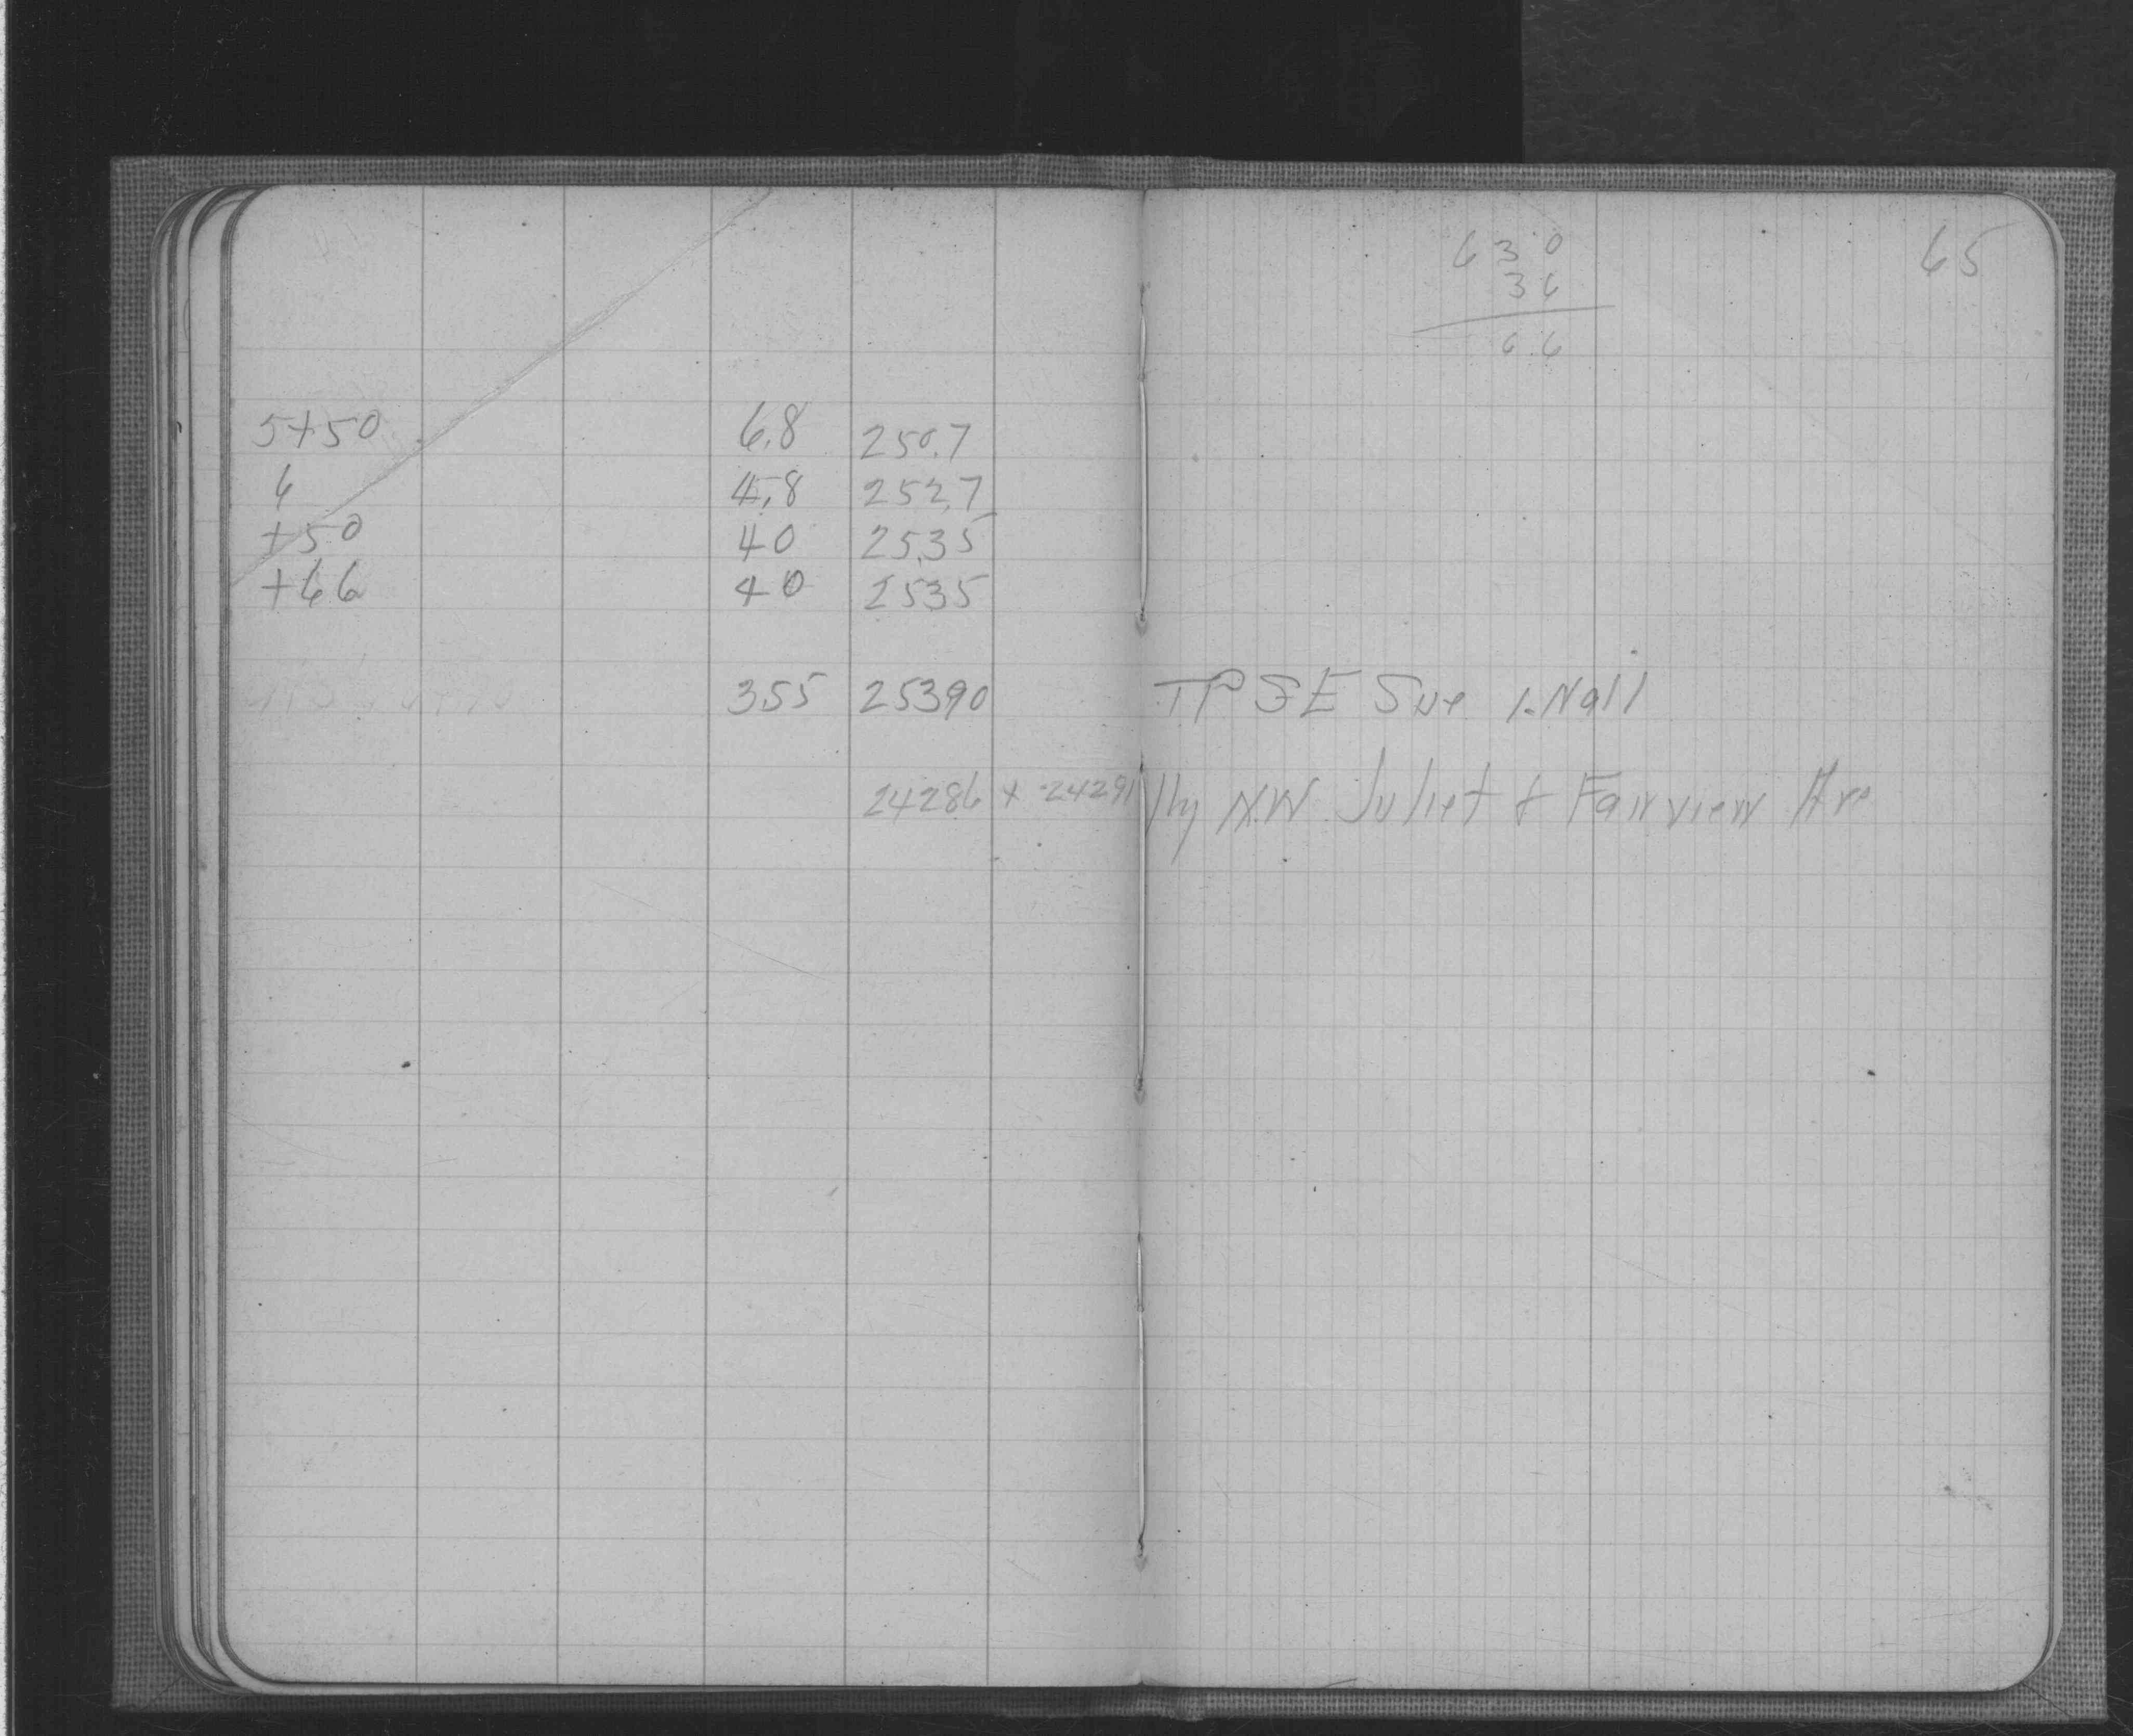 5+50 6.8 250.7
6 4.8 252.7
+50 40 253.5
+66 40 2535
355 25390
24286 + 24291
630
36
6.6
65
TP SE Sue 1. Nail
Hy NW Juliet & Fairview Ave